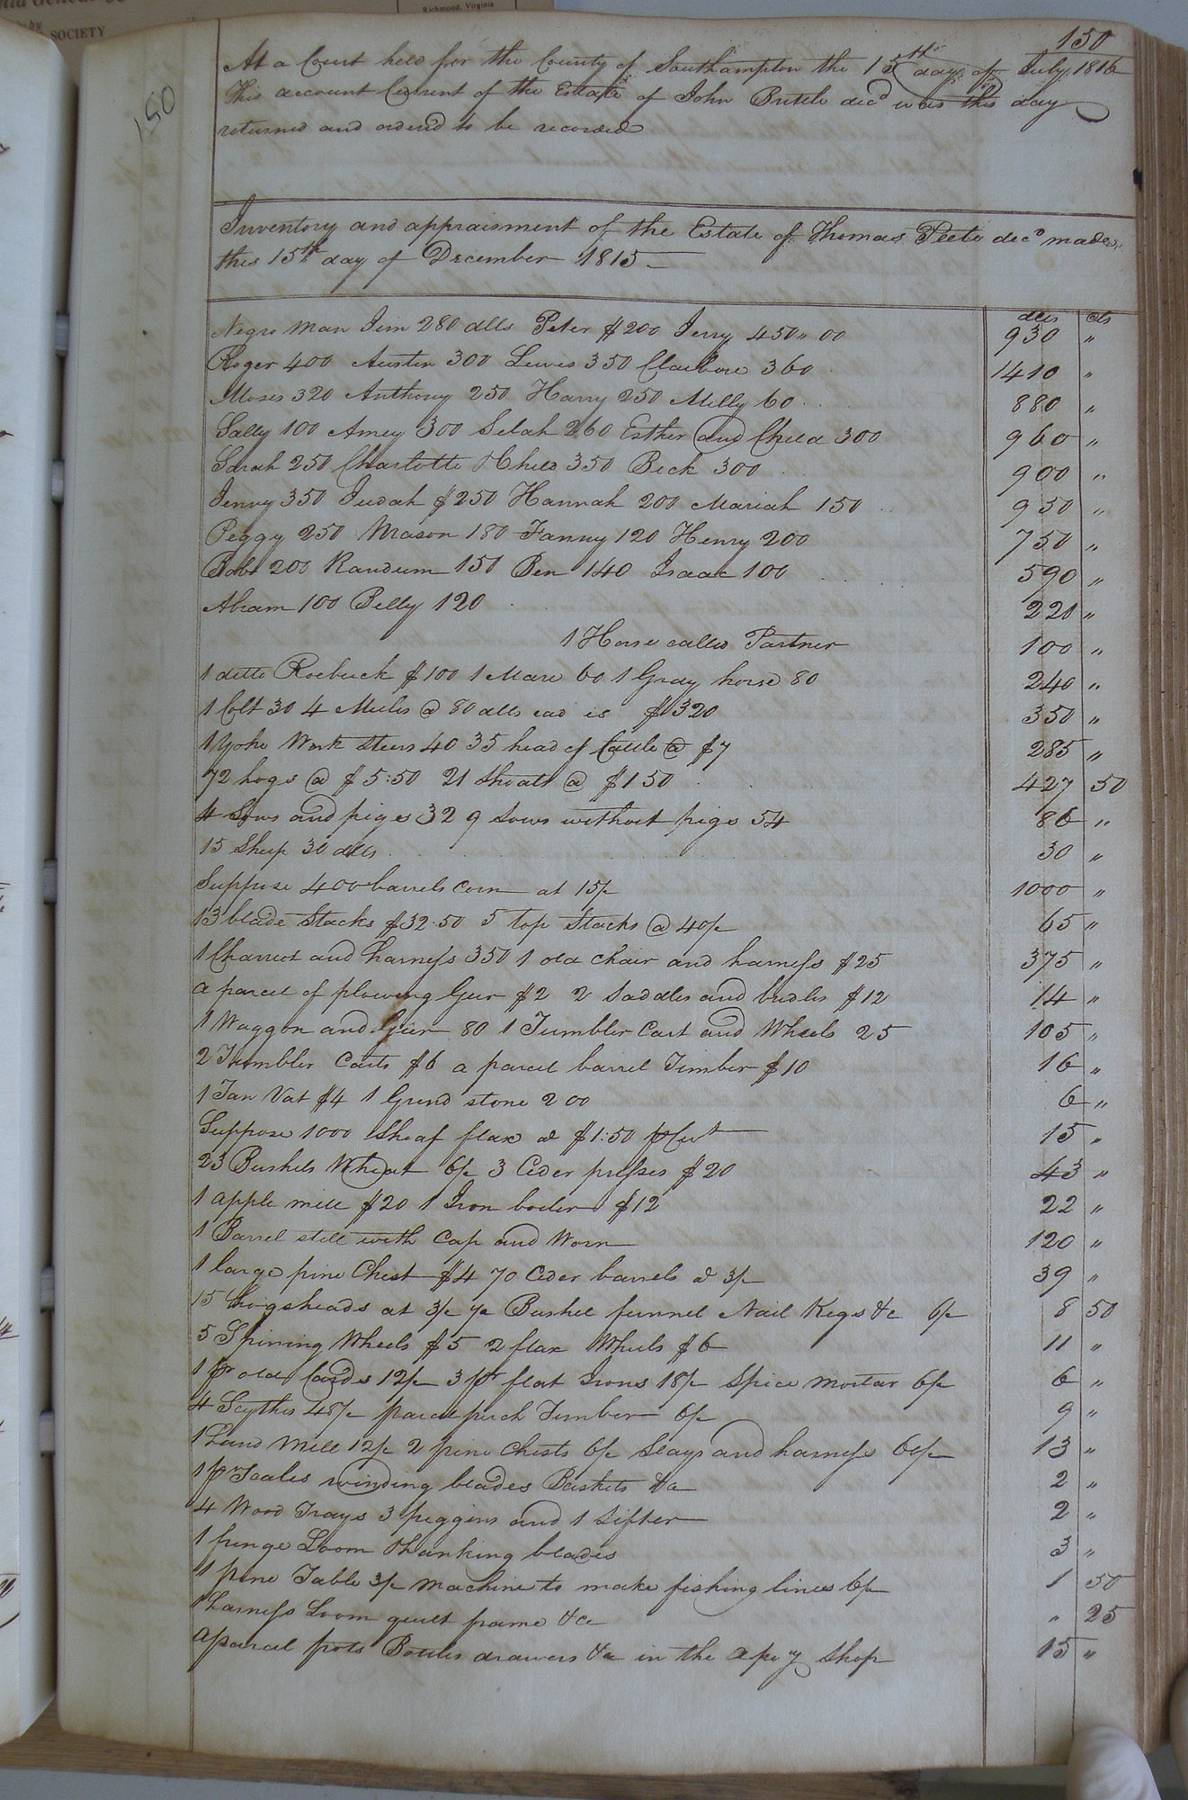 SOCIETY
Richmond, Virginia
150
150
At a Court held for the County of Southampton the 15th day of July 1816
This account Current of the Estate of John Britile decd was this day
returned and orderd to be recorded
Inventory and appraisment of the Estate of Thomas Peete decd made
this 15th day of December 1815
dlls cts
Negro man Jim 280 dlls Peter $200 Jerry 450 " 00 930 "
Roger 400 Austin 300 Lewis 350 Claiborne 360 1410 "
Moses 320 Anthony 250 Harry 250 Milly 60 880 "
Sally 100 Amey 300 Selah 260 Esther and Child 300 960 "
Sarah 250 Charlotte & Child 350 Beck 300 900 "
Jenny 350 Judah $250 Hannah 200 Mariah 150 950 "
Peggy 250 Mason 180 Fanny 120 Henry 200 750 "
Bob 200 Randum 150 Ben 140 Isaac 100 590 "
Abram 100 Billy 120 220 "
1 Horse called Partner 100 "
1 ditto Roebuck $100 1 Mare 60 1 Gray horse 80 240 "
1 Colt 30 4 Mules @ 80 dlls ead is $320 350 "
1 Yoke Work Steers 40 35 head of Cattle @ $7 285 "
72 hogs @ $5:50 21 Shoats @ $1 50 427 50
4 Sows and piges 32 9 Sows without pigs 54 86 "
15 Sheep 30 dlls 30 "
Suppose 400 barrels corn at 15/ 1000 "
13 blade Stacks $32.50 5 top Stacks @ 40/ 65 "
1 Charriot and harness 350 1 old chair and harness $25 375 "
a parcel of plowing Gear $2 2 Saddles and bridles $12 14 "
1 Waggon and Gear 80 1 Tumbler Cart and Wheels 25 105 "
2 Tumbler Carts $6 a parcel barrel Timber $10 16 "
1 Tan Vat $4 1 Grind stone 2 00 6 "
Suppose 1000 Sheaf flax @ $1:50 15 "
23 Bushels Wheat 6/ 3 Cider presses $20 43 "
1 apple mill $20 1 Iron boiler $12 22 "
1 Barrel still with Cap and Worm 120 "
1 large pine Chest $4 70 Cider barrels @ 3/ 39 "
15 hogsheads at 3/ Bushel funnel Nail Kegs &c 6/ 8 50
5 Spinning Wheels $5 2 flax Wheels $6 11 "
1 pr old Cards 12/ 3 pr flat Irons 18/ Spice mortar 6/ 6 "
4 Scythes 48/ parcel Timber 6/ 9 "
1 Mill 12/ 2 pine Chests 6/ Slays and harness 60/ 13 "
1 pr Scales winding blades Baskets &c 2 "
4 Wood Trays 3 piggins and 1 Sifter 2 "
1 fringe Loom & hanking blades 3 "
1 pine Table 3/ machine to make fishing lines 6/ 1 50
1 harness Loom quilt frame &c " 25
a parcel pots Bottles drawers &c in the shop 15 "